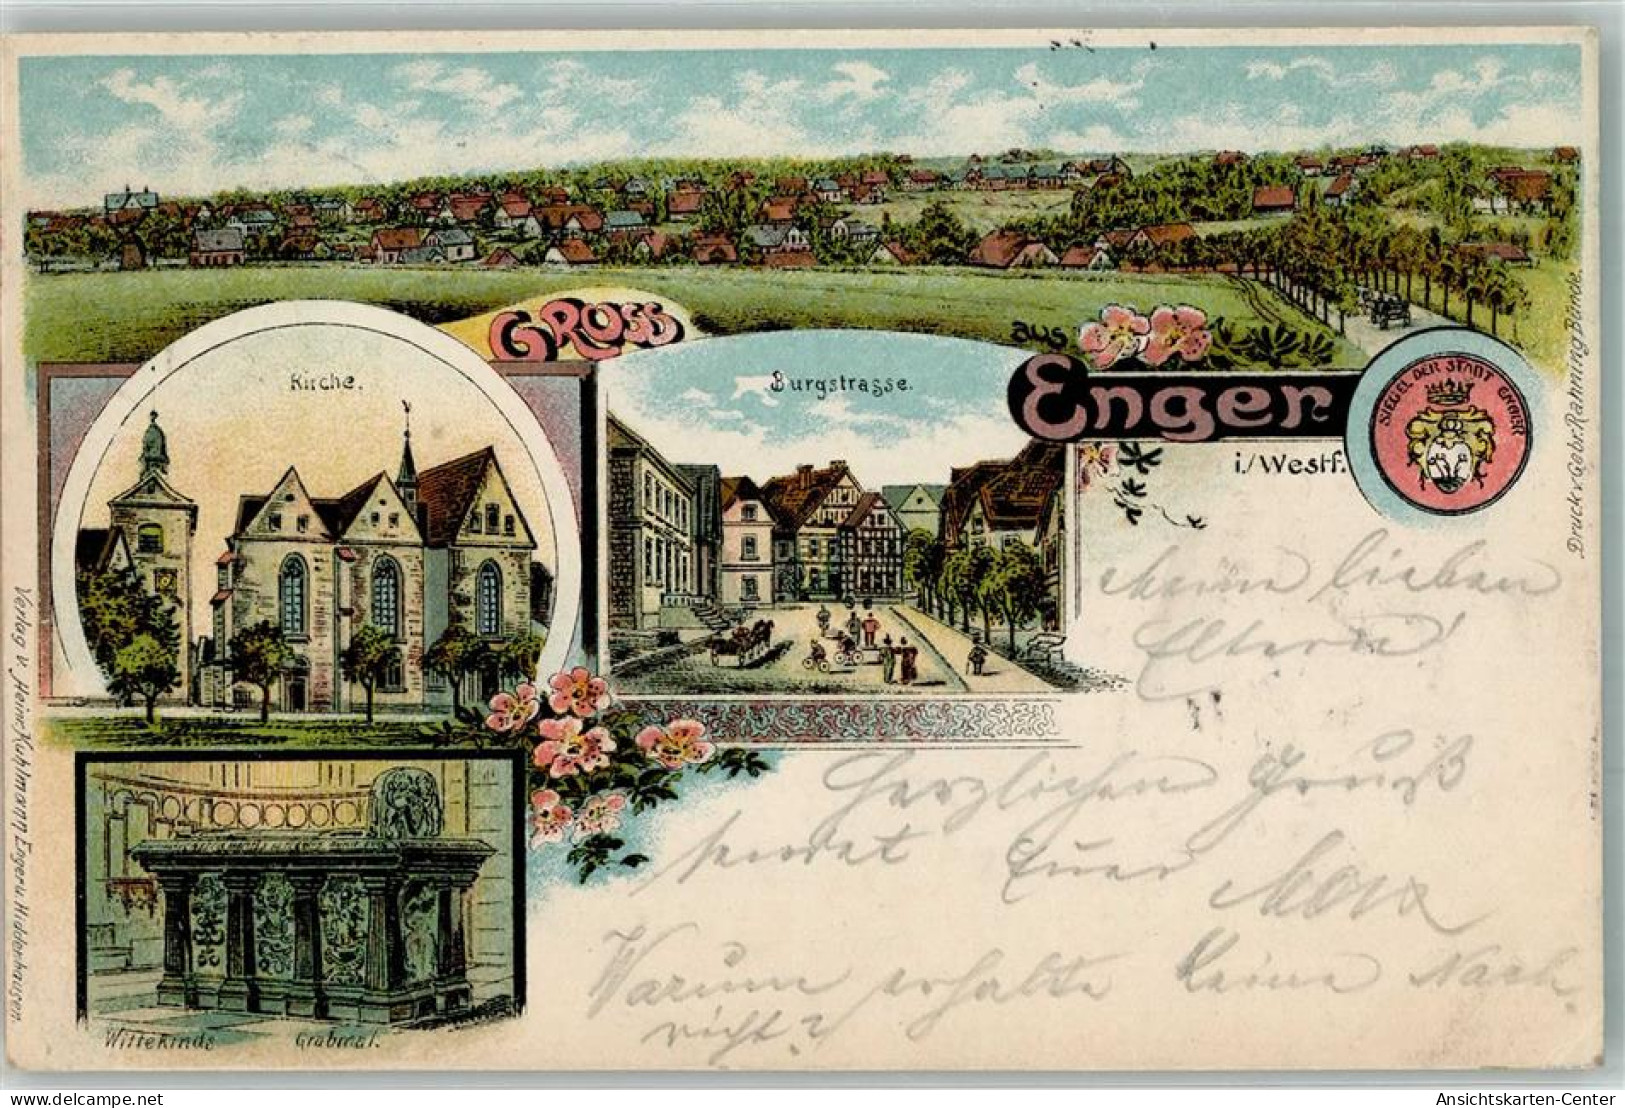 GRUSS
aus
Enger
i./Westf.
SIEGEL DER STADT ENGER
Kirche.
Burgstrasse.
Wittekinds Grabmal.
Druck v. Gebr. Rahning Bünde.
Verlag v. Heinr. Kuhlmann Enger u. Hiddenhausen.
Meine lieben
Eltern!
Herzlichen Gruß
sendet Euer Max
Warum erhalte keine Nach-
richt?
Ansichtskarten-Center
delcampe.net